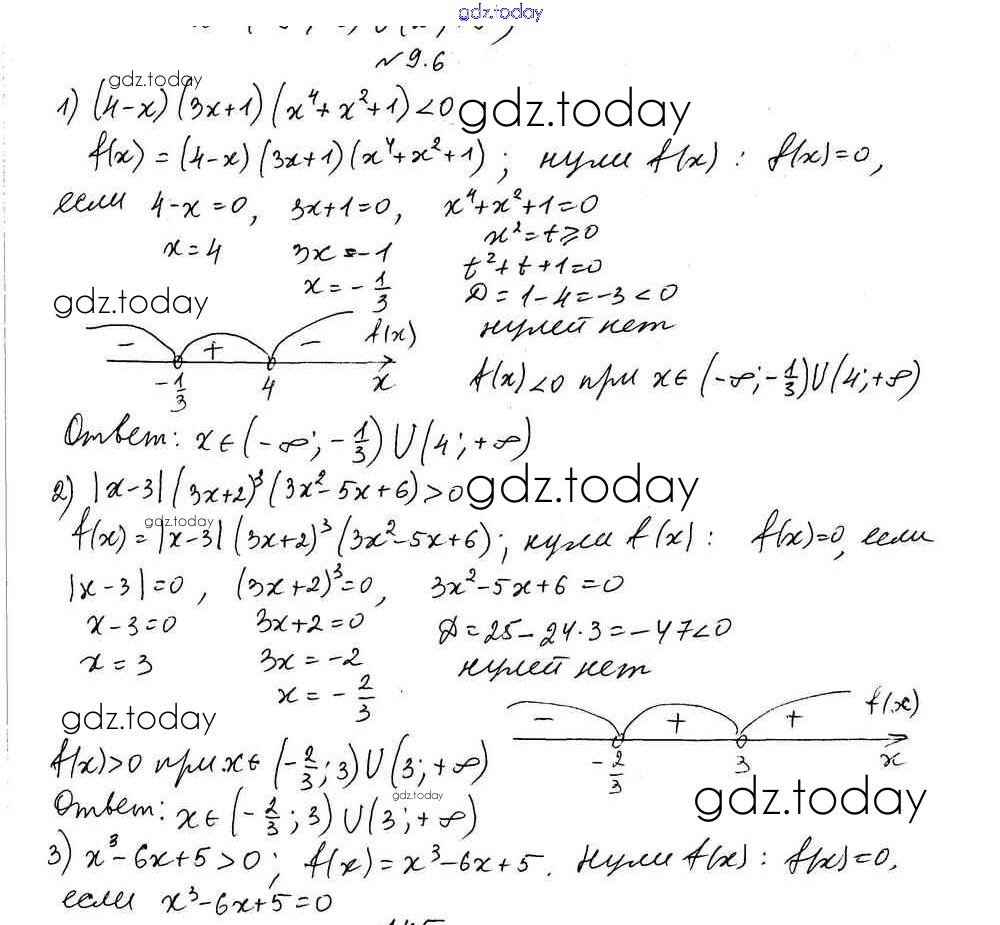 gdz.today
№9.6
gdz.today
1) (4-x)(3x+1)(x⁴+x²+1)<0 gdz.today
f(x)=(4-x)(3x+1)(x⁴+x²+1); нули f(x): f(x)=0,
если 4-x=0, 3x+1=0, x⁴+x²+1=0
x=4 3x=-1 x²=t≥0
x=-1/3 t²+t+1=0
gdz.today D=1-4=-3<0
нулей нет
- + - f(x)
-1/3 4 x
f(x)<0 при x∈(-∞;-1/3)∪(4;+∞)
Ответ: x∈(-∞;-1/3)∪(4;+∞)
2) |x-3|(3x+2)³(3x²-5x+6)>0 gdz.today
gdz.today
f(x)=|x-3|(3x+2)³(3x²-5x+6); нули f(x): f(x)=0, если
|x-3|=0, (3x+2)³=0, 3x²-5x+6=0
x-3=0 3x+2=0 D=25-24·3=-47<0
x=3 3x=-2 нулей нет
x=-2/3
gdz.today
- + + f(x)
-2/3 3 x
f(x)>0 при x∈(-2/3;3)∪(3;+∞)
gdz.today
gdz.today
Ответ: x∈(-2/3;3)∪(3;+∞)
3) x³-6x+5>0; f(x)=x³-6x+5. Нули f(x): f(x)=0,
если x³-6x+5=0